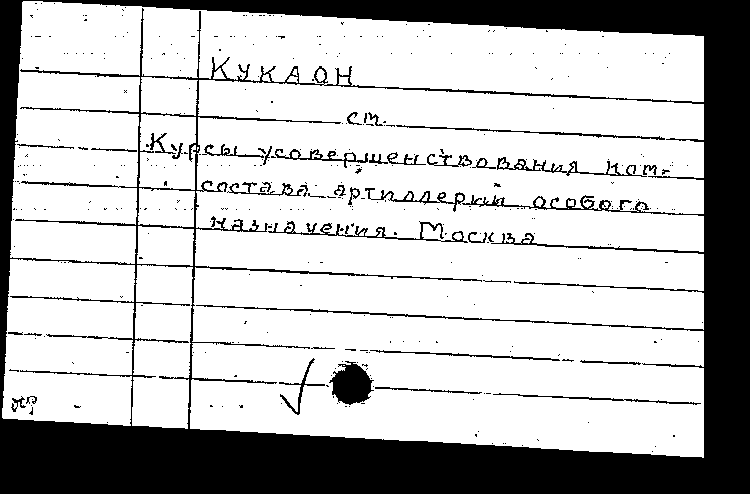 КУКАОН
ст.
Курсы усовершенствования ком-
состава артиллерии особого
назначения. Москва